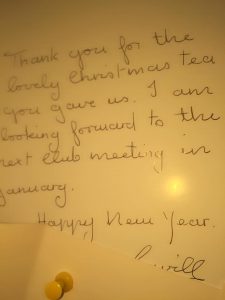 Thank you for the
lovely Christmas tea
you gave us. I am
looking forward to the
next club meeting in
January.
Happy New Year.